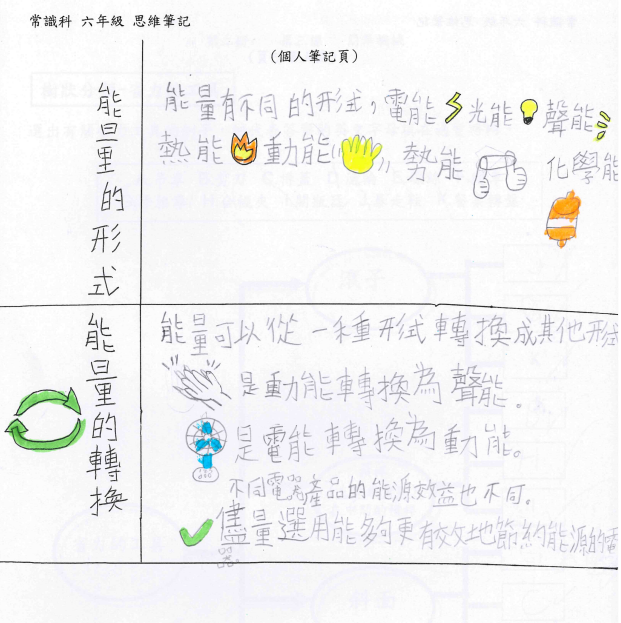 常識科 六年級 思維筆記
(個人筆記頁)
能量的形式
能量有不同的形式，電能 光能 聲能
熱能 動能 勢能 化學能
能量的轉換
能量可以從一種形式轉換成其他形式
是動能轉換為聲能。
是電能轉換為動能。
不同電器產品的能源效益也不同。
儘量選用能夠更有效地節約能源的電